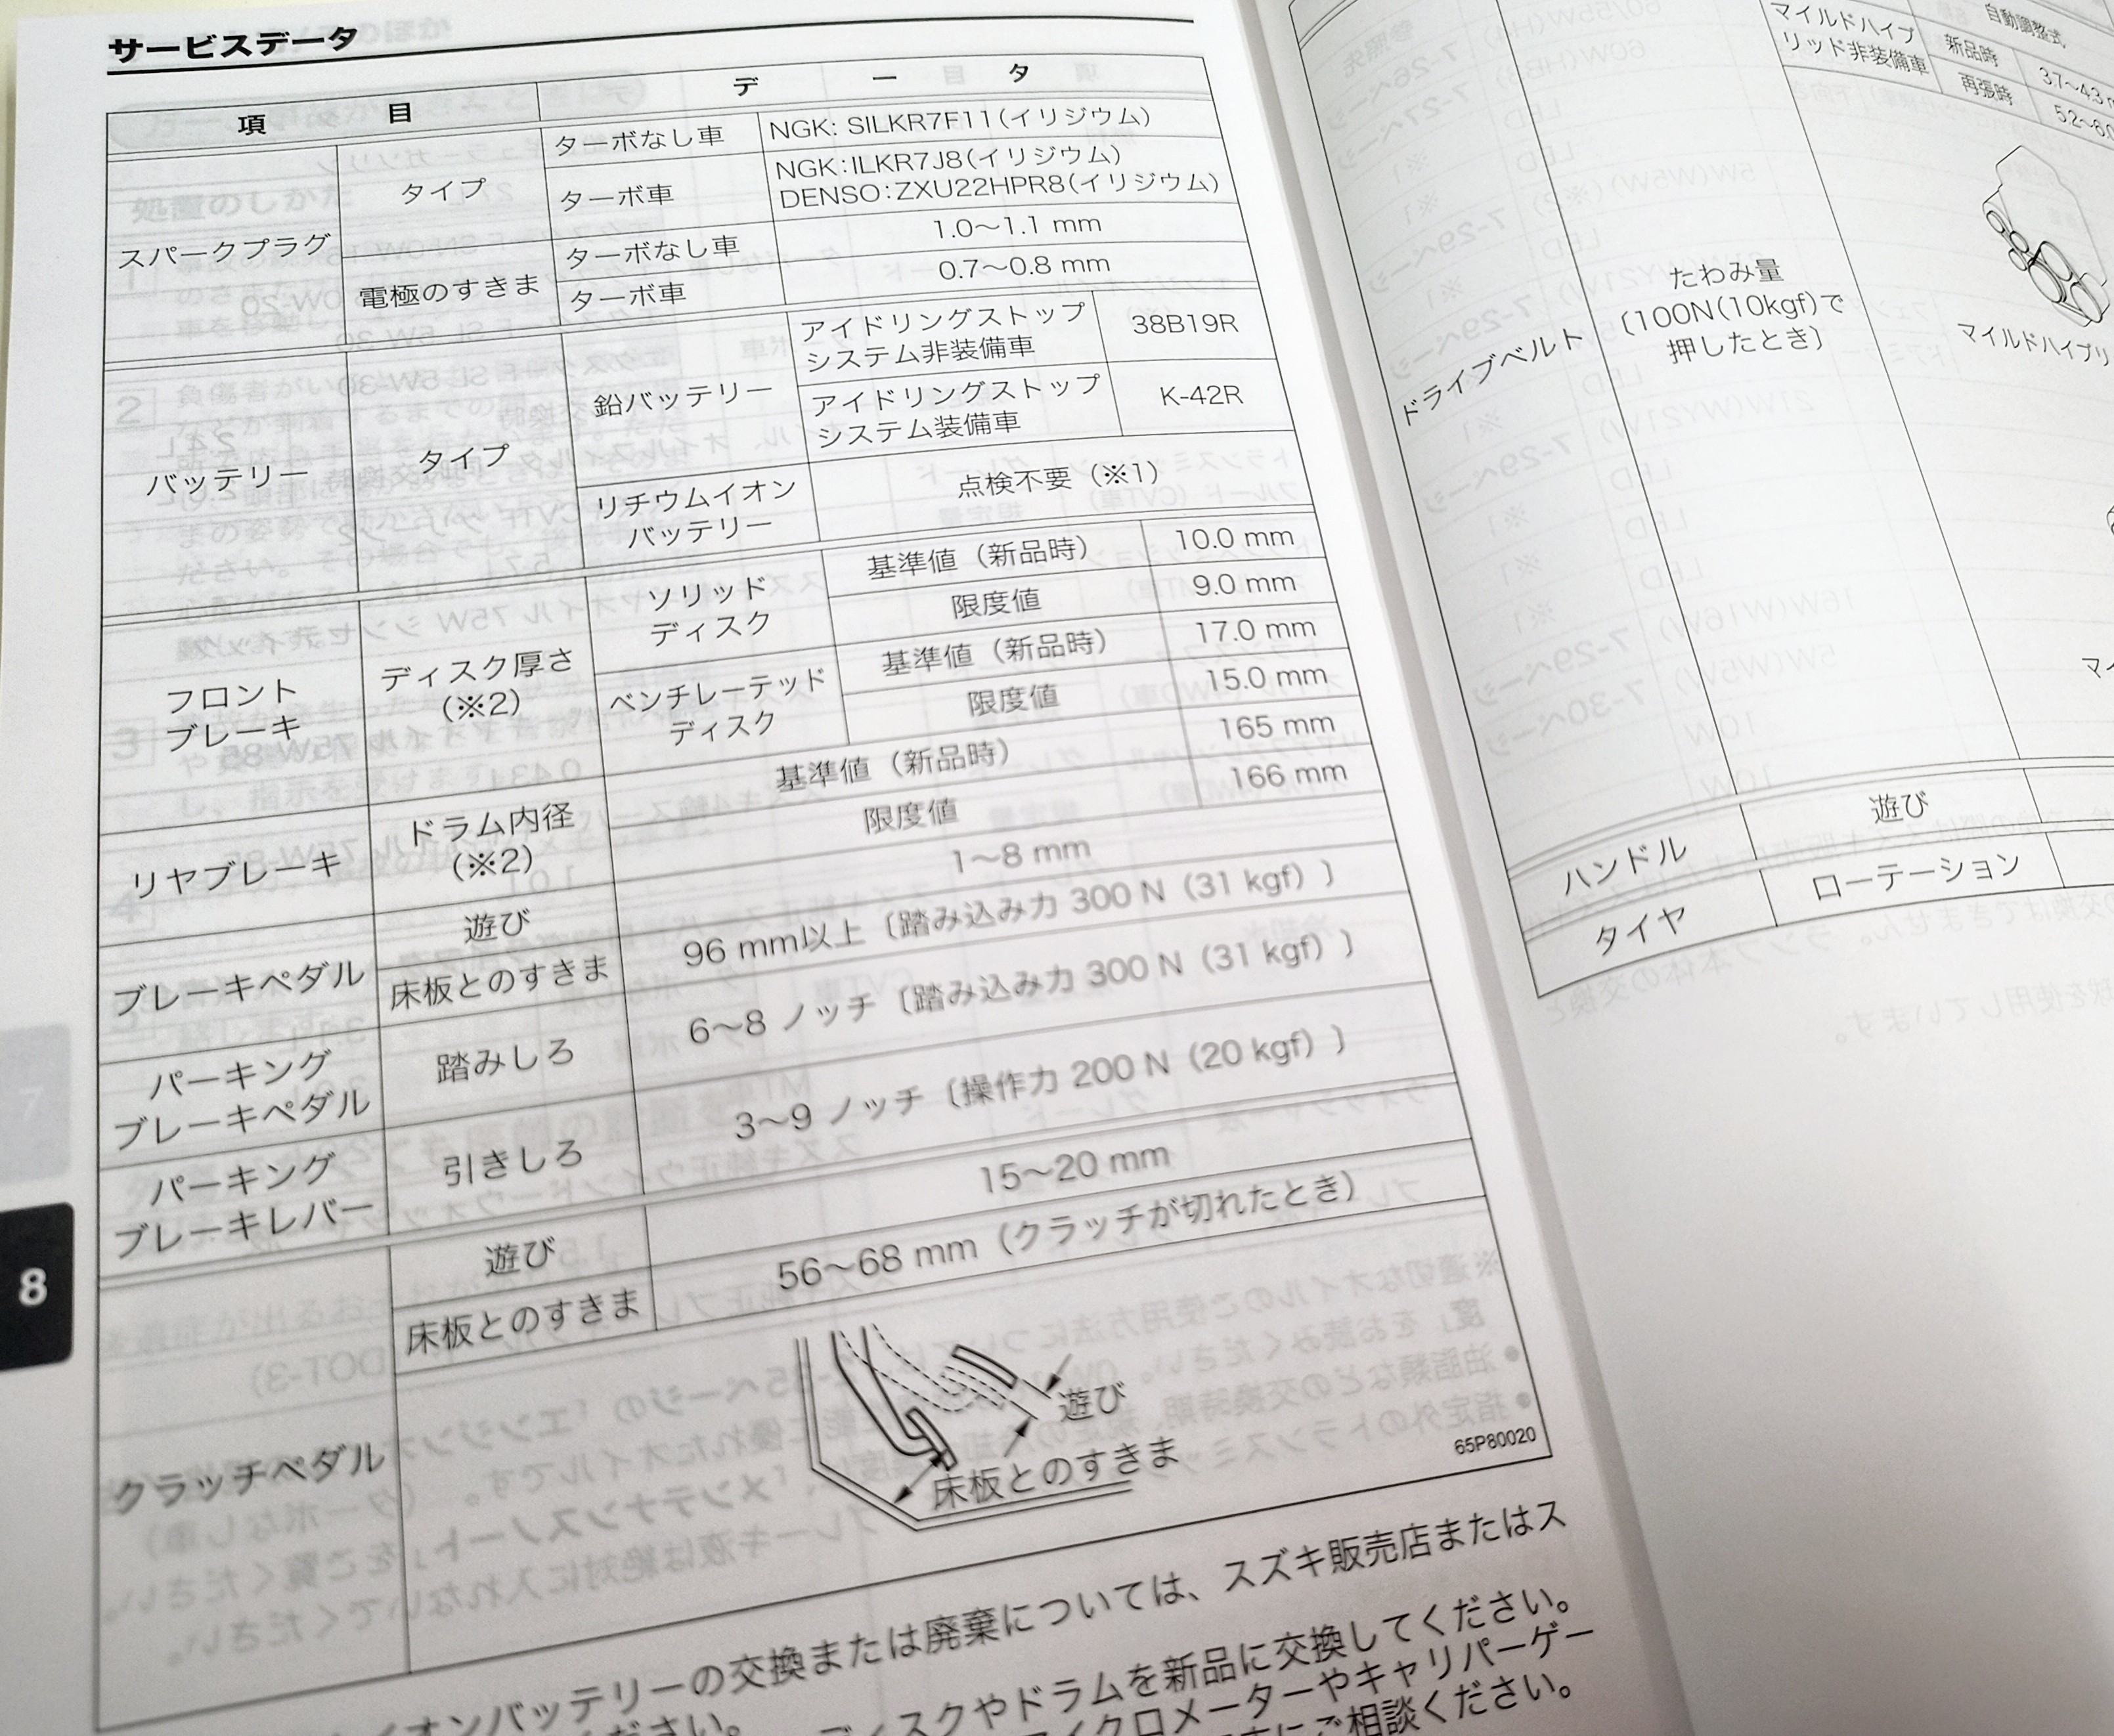 サービスデータ
項 目 デ ー タ
スパークプラグ タイプ ターボなし車 NGK: SILKR7F11(イリジウム)
ターボ車 NGK:ILKR7J8(イリジウム)
DENSO:ZXU22HPR8(イリジウム)
電極のすきま ターボなし車 1.0〜1.1 mm
ターボ車 0.7〜0.8 mm
バッテリー タイプ 鉛バッテリー アイドリングストップ
システム非装備車 38B19R
アイドリングストップ
システム装備車 K-42R
リチウムイオン
バッテリー 点検不要（※1）
フロント
ブレーキ ディスク厚さ
（※2） ソリッド
ディスク 基準値（新品時） 10.0 mm
限度値 9.0 mm
ベンチレーテッド
ディスク 基準値（新品時） 17.0 mm
限度値 15.0 mm
リヤブレーキ ドラム内径
（※2） 基準値（新品時） 165 mm
限度値 166 mm
ブレーキペダル 遊び 1〜8 mm
床板とのすきま 96 mm以上〔踏み込み力 300 N（31 kgf）〕
パーキング
ブレーキペダル 踏みしろ 6〜8 ノッチ〔踏み込み力 300 N（31 kgf）〕
パーキング
ブレーキレバー 引きしろ 3〜9 ノッチ〔操作力 200 N（20 kgf）〕
クラッチペダル 遊び 15〜20 mm
床板とのすきま 56〜68 mm（クラッチが切れたとき）
遊び
床板とのすきま
65P80020
イオンバッテリーの交換または廃棄については、スズキ販売店またはス
ださい。
ディスクやドラムを新品に交換してください。
マイクロメーターやキャリパーゲー
にご相談ください。
8
ドライブベルト たわみ量
〔100N(10kgf)で
押したとき〕
マイルドハイブ
リッド非装備車 自動調整式
新品時 3.7〜4.3
再張時 5.2〜6.0
マイルドハイブリ
マイ
ハンドル 遊び
タイヤ ローテーション